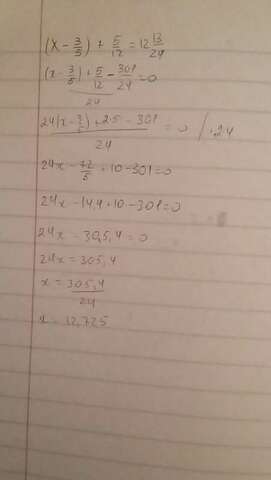 (x - 3/5) + 5/12 = 12 13/24
(x - 3/5) + 5/12 - 301/24 = 0
24
24(x - 3/5) + 2·5 - 301 / 24 = 0 /·24
24x - 72/5 + 10 - 301 = 0
24x - 14,4 + 10 - 301 = 0
24x - 305,4 = 0
24x = 305,4
x = 305,4/24
x = 12,725